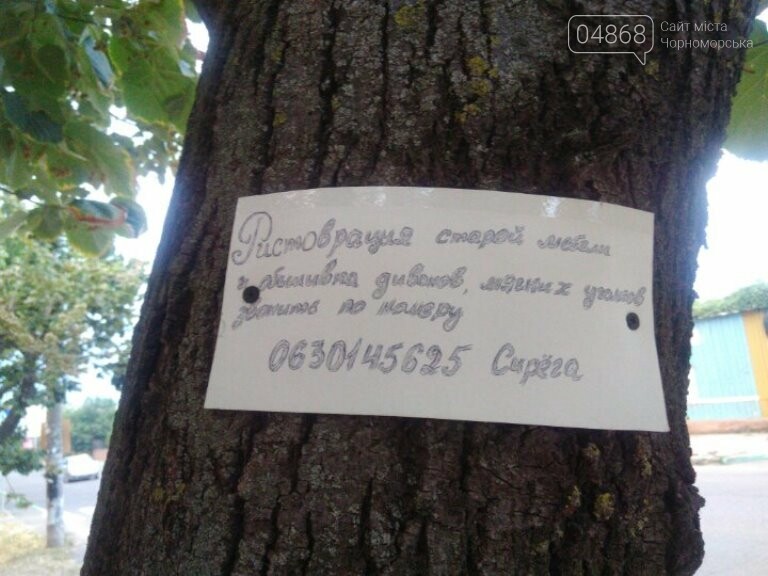 04868 Сайт міста
Чорноморська
Ристоврация старой мебели
и обшивка диванов, мягких уголков
звонить по номеру
0630145625 Сирёга